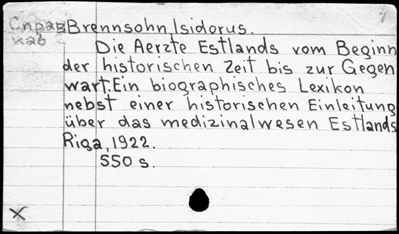 Справ
каб
Brennsohn, Isidorus.
Die Aerzte Estlands vom Beginn
der historischen Zeit bis zur Gegen
wart. Ein biographisches Lexikon
nebst einer historischen Einleitung
über das medizinalwesen Estlands
Riga, 1922.
550 s.